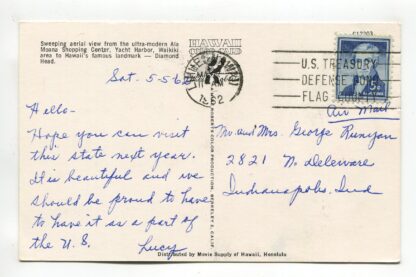 Sweeping aerial view from the ultra-modern Ala
Moana Shopping Center, Yacht Harbor, Waikiki
area to Hawaii's famous landmark — Diamond
Head.
HAWAII
C12203
Sat. 5-5-62
1962
U.S. TREASURY
DEFENSE BOND
FLAG
5¢
Air Mail
Hello-
Hope you can visit
this state next year.
It is beautiful and we
should be proud to have
to have it as a part of
the U.S. Lucy
Mr. and Mrs. George Runyan
2821 N. Deleware
Indianapolis, Ind
BERKELEY 2, CALIF.
Distributed by Movie Supply of Hawaii, Honolulu